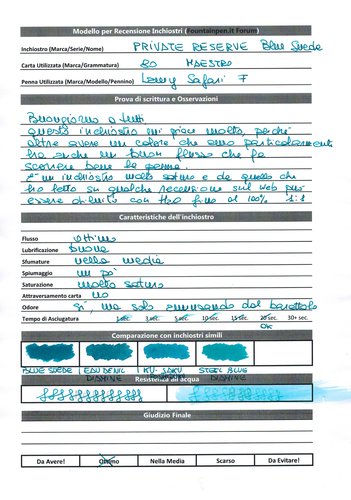 Modello per Recensione Inchiostri (Fountainpen.it Forum)
Inchiostro (Marca/Serie/Nome) PRIVATE RESERVE Blue Suede
Carta Utilizzata (Marca/Grammatura) 80 MAESTRO
Penna Utilizzata (Marca/Modello/Pennino) Lamy Safari F
Prova di scrittura e Osservazioni
Buongiorno a tutti
questo inchiostro mi piace molto, perché
oltre avere un colore che amo particolarmente
ha anche un buon flusso che fa
scorrere bene la penna.
E' un inchiostro molto saturo e da quello che
ho letto su qualche recensione sul web può
essere diluito con H2O fino al 100% 1:1
Caratteristiche dell'inchiostro
Flusso ottimo
Lubrificazione buona
Sfumature nella media
Spiumaggio un pò
Saturazione molto saturo
Attraversamento carta no
Odore si, ma solo annusando dal barattolo
Tempo di Asciugatura 1 sec. 5 sec. 10 sec. 15 sec. 20 sec. 30+ sec.
OK
Comparazione con inchiostri simili
BLUE SUEDE EDU DENIC KU-JAKU STEEL BLUE
DIAMINE DIAMINE
Resistenza all'acqua
Giudizio Finale
Da Avere! Ottimo Nella Media Scarso Da Evitare!